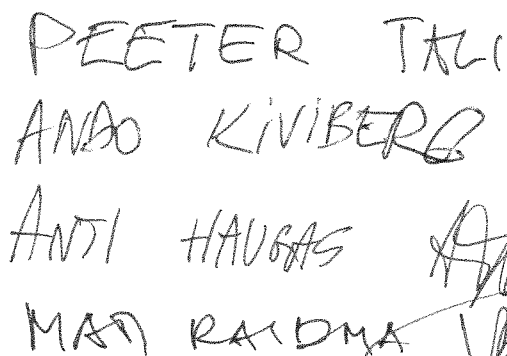 PEETER TALI
ANDO KIVIBERG
ANTI HAUGAS
MATI RAIDMA